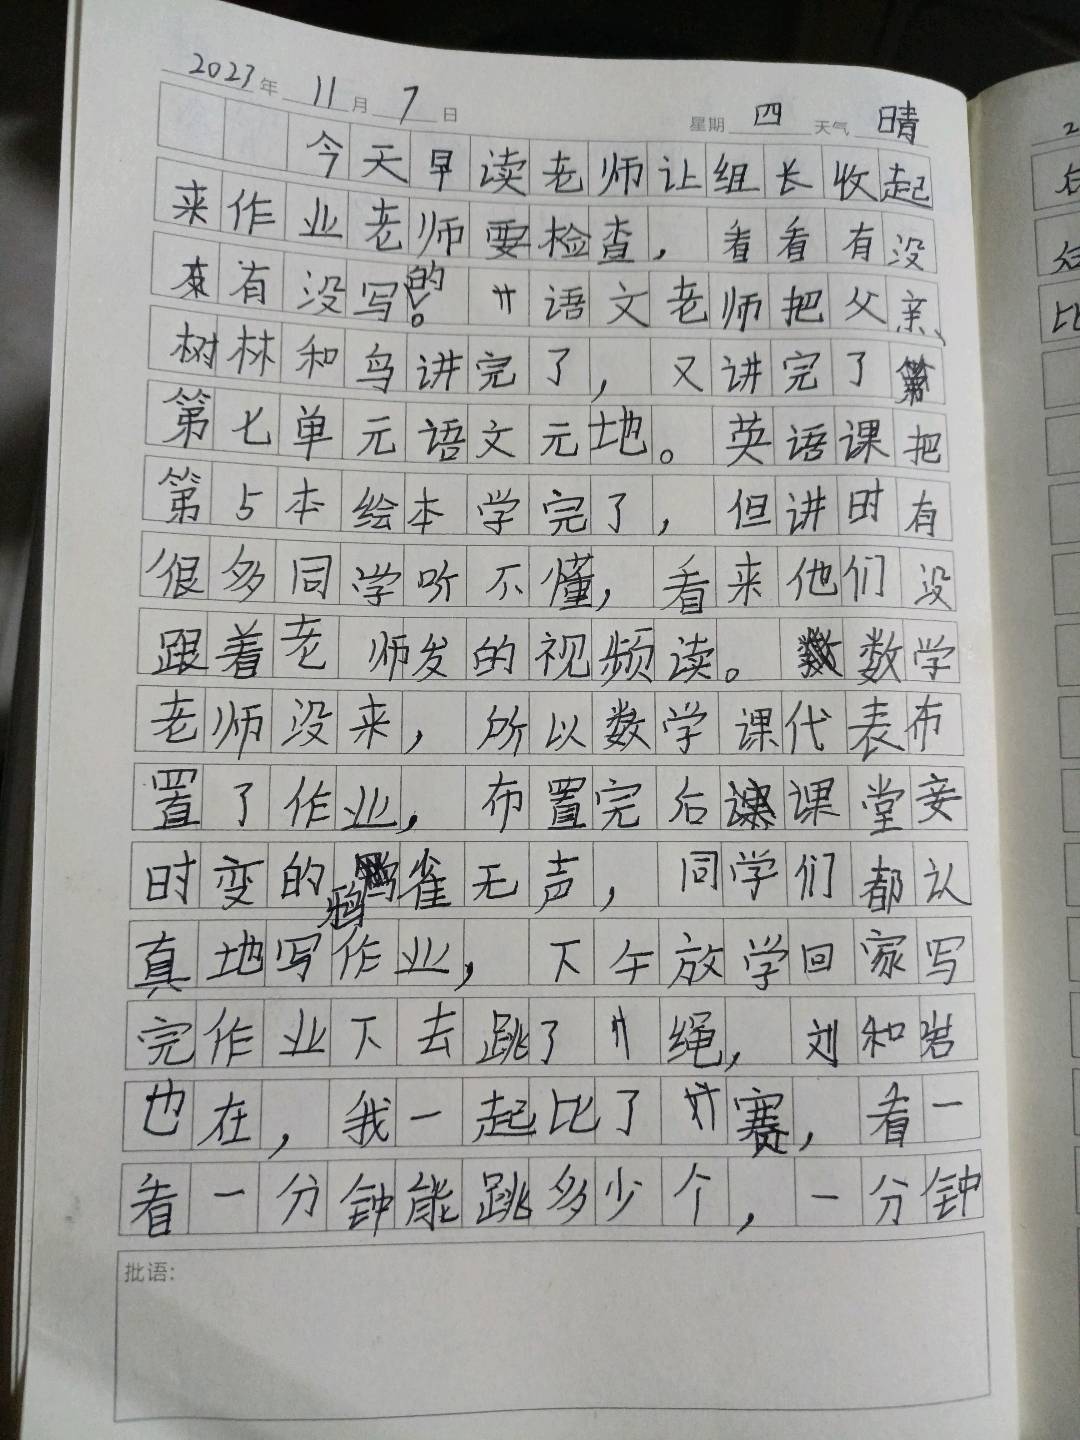 2023年 11月 7日 星期 四 天气 晴
今天早读老师让组长收起
来作业老师要检查，看看有没
有没写的。语文老师把父亲、
树林和鸟讲完了，又讲完了
第七单元语文元地。英语课把
第5本绘本学完了，但讲时有
很多同学听不懂，看来他们没
跟着老师发的视频读。数学
老师没来，所以数学课代表布
置了作业，布置完后课堂妾
时变的鸦雀无声，同学们都认
真地写作业，下午放学回家写
完作业下去跳了绳，刘和岩
也在，我一起比了赛，看一
看一分钟能跳多少个，一分钟
批语: